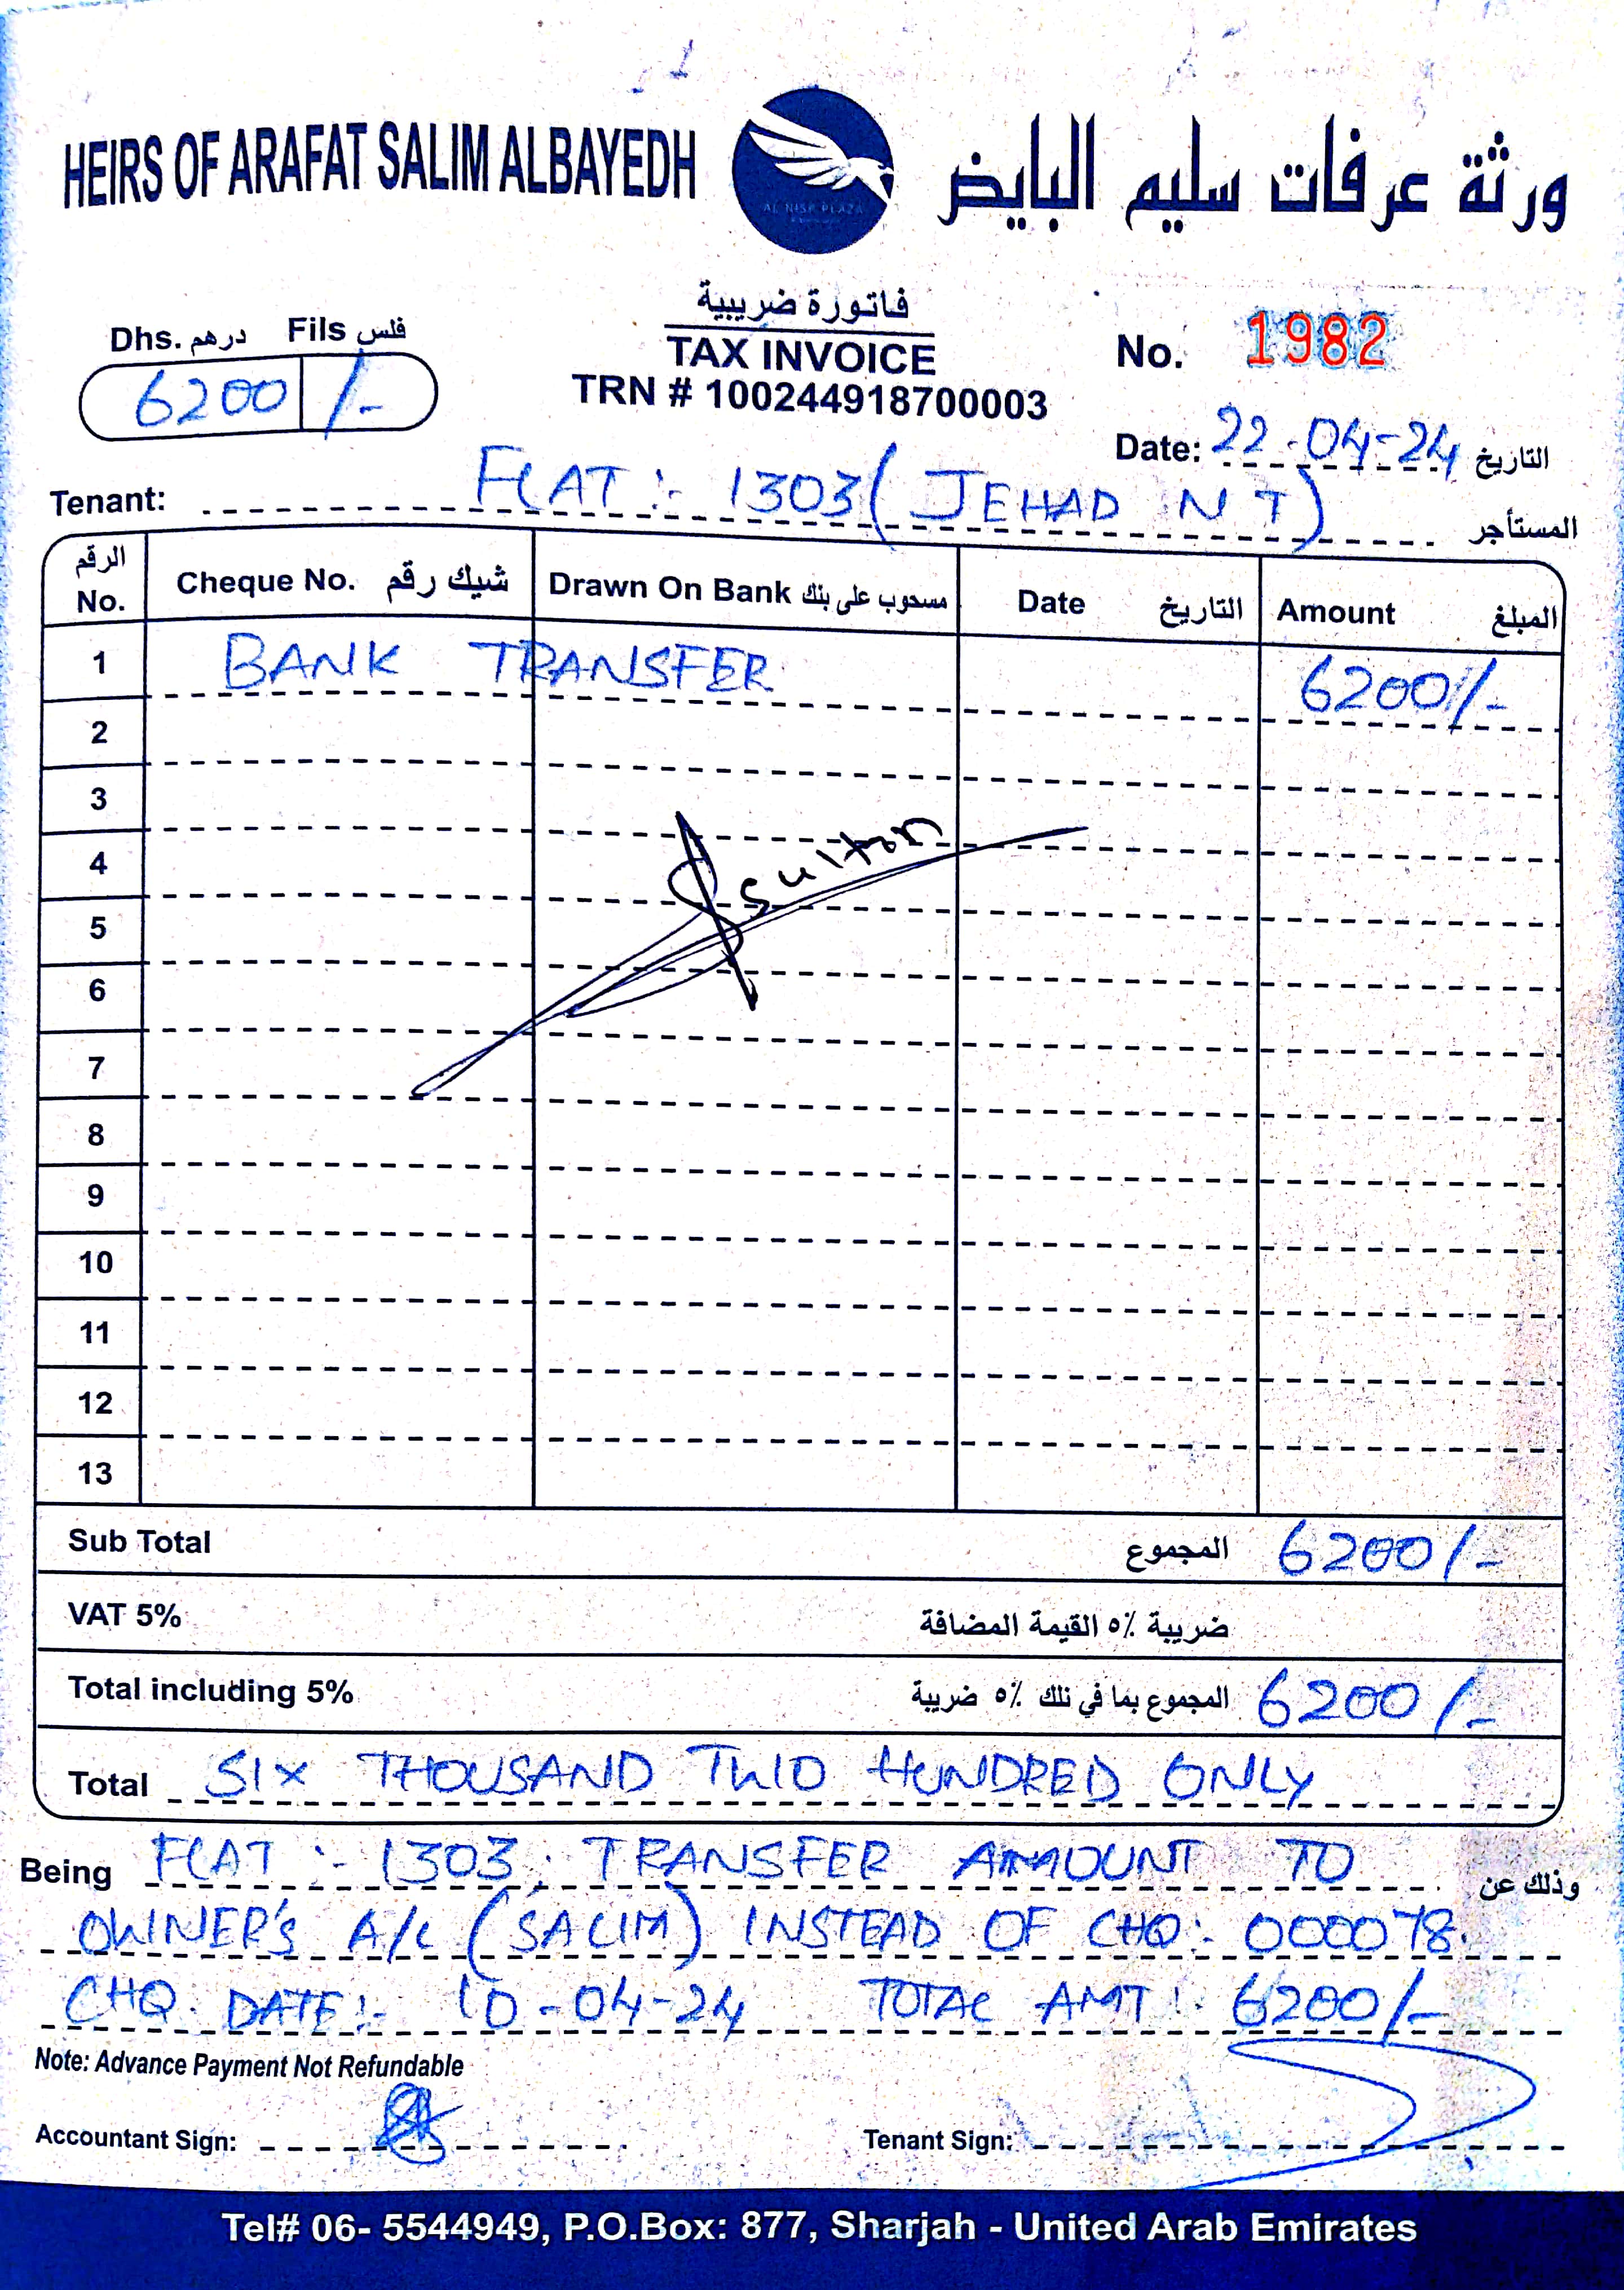 HEIRS OF ARAFAT SALIM ALBAYEDH
ورثة عرفات سليم البايض
AL NISR PLAZA
فاتورة ضريبية
TAX INVOICE
TRN # 100244918700003
Dhs. درهم Fils فلس
6200 /-
No. 1982
Date: 22-04-24 التاريخ
Tenant: FLAT :- 1303 ( JEHAD N T ) المستأجر
الرقم No. Cheque No. شيك رقم Drawn On Bank مسحوب على بنك Date التاريخ Amount المبلغ
1 BANK TRANSFER 6200/-
2
3
4
5
6
7
8
9
10
11
12
13
Sultan
Sub Total المجموع 6200/-
VAT 5% ضريبة ٥٪ القيمة المضافة
Total including 5% المجموع بما في نلك ٥٪ ضريبة 6200/-
Total SIX THOUSAND TWO HUNDRED ONLY
Being FLAT :- 1303, TRANSFER AMOUNT TO وذلك عن
OWNER'S A/C (SALIM) INSTEAD OF CHQ:- 000078.
CHQ. DATE:- 10-04-24 TOTAL AMT:- 6200/-
Note: Advance Payment Not Refundable
Accountant Sign:
Tenant Sign:
Tel# 06- 5544949, P.O.Box: 877, Sharjah - United Arab Emirates